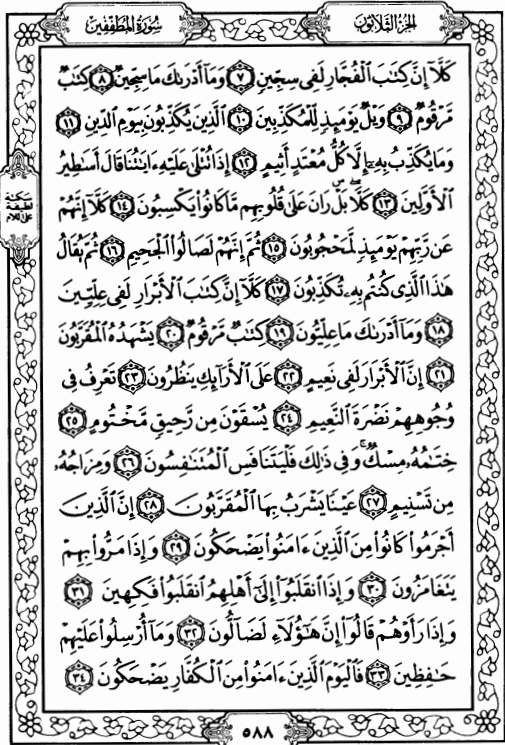 سُورَةُ المُطَفِّفِينَ
الجُزْءُ الثَّلَاثُونَ
كَلَّآ إِنَّ كِتَٰبَ ٱلْفُجَّارِ لَفِى سِجِّينٍ ۝٧ وَمَآ أَدْرَىٰكَ مَا سِجِّينٌ ۝٨ كِتَٰبٌ
مَّرْقُومٌ ۝٩ وَيْلٌ يَوْمَئِذٍ لِّلْمُكَذِّبِينَ ۝١٠ ٱلَّذِينَ يُكَذِّبُونَ بِيَوْمِ ٱلدِّينِ ۝١١
وَمَا يُكَذِّبُ بِهِۦٓ إِلَّا كُلُّ مُعْتَدٍ أَثِيمٍ ۝١٢ إِذَا تُتْلَىٰ عَلَيْهِ ءَايَٰتُنَا قَالَ أَسَٰطِيرُ
ٱلْأَوَّلِينَ ۝١٣ كَلَّا ۖ بَلْ ۜ رَانَ عَلَىٰ قُلُوبِهِم مَّا كَانُوا۟ يَكْسِبُونَ ۝١٤ كَلَّآ إِنَّهُمْ
عَن رَّبِّهِمْ يَوْمَئِذٍ لَّمَحْجُوبُونَ ۝١٥ ثُمَّ إِنَّهُمْ لَصَالُوا۟ ٱلْجَحِيمِ ۝١٦ ثُمَّ يُقَالُ
هَٰذَا ٱلَّذِى كُنتُم بِهِۦ تُكَذِّبُونَ ۝١٧ كَلَّآ إِنَّ كِتَٰبَ ٱلْأَبْرَارِ لَفِى عِلِّيِّينَ
۝١٨ وَمَآ أَدْرَىٰكَ مَا عِلِّيُّونَ ۝١٩ كِتَٰبٌ مَّرْقُومٌ ۝٢٠ يَشْهَدُهُ ٱلْمُقَرَّبُونَ
۝٢١ إِنَّ ٱلْأَبْرَارَ لَفِى نَعِيمٍ ۝٢٢ عَلَى ٱلْأَرَآئِكِ يَنظُرُونَ ۝٢٣ تَعْرِفُ فِى
وُجُوهِهِمْ نَضْرَةَ ٱلنَّعِيمِ ۝٢٤ يُسْقَوْنَ مِن رَّحِيقٍ مَّخْتُومٍ ۝٢٥
خِتَٰمُهُۥ مِسْكٌ ۚ وَفِى ذَٰلِكَ فَلْيَتَنَافَسِ ٱلْمُتَنَٰفِسُونَ ۝٢٦ وَمِزَاجُهُۥ
مِن تَسْنِيمٍ ۝٢٧ عَيْنًا يَشْرَبُ بِهَا ٱلْمُقَرَّبُونَ ۝٢٨ إِنَّ ٱلَّذِينَ
أَجْرَمُوا۟ كَانُوا۟ مِنَ ٱلَّذِينَ ءَامَنُوا۟ يَضْحَكُونَ ۝٢٩ وَإِذَا مَرُّوا۟ بِهِمْ
يَتَغَامَزُونَ ۝٣٠ وَإِذَا ٱنقَلَبُوٓا۟ إِلَىٰٓ أَهْلِهِمُ ٱنقَلَبُوا۟ فَكِهِينَ ۝٣١
وَإِذَا رَأَوْهُمْ قَالُوٓا۟ إِنَّ هَٰٓؤُلَآءِ لَضَآلُّونَ ۝٣٢ وَمَآ أُرْسِلُوا۟ عَلَيْهِمْ
حَٰفِظِينَ ۝٣٣ فَٱلْيَوْمَ ٱلَّذِينَ ءَامَنُوا۟ مِنَ ٱلْكُفَّارِ يَضْحَكُونَ ۝٣٤
سكتة
لطيفة
على اللام
٥٨٨